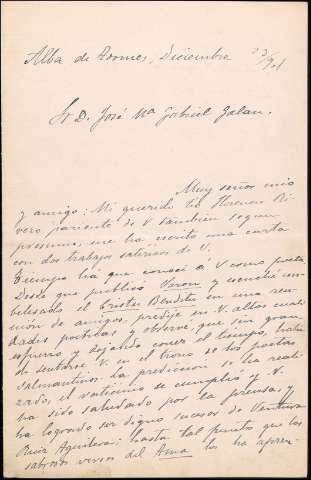 Alba de Tormes, Diciembre 23/901
Sr D. José Mª Gabriel Galan.
Muy señor mio
y amigo: Mi querido tio Florencio Ri-
vero pariente de V tambien segun
presumo, me ha escrito una carta
con dos trabajos satiricos de V.
Tiempo ha que conocí á V como poeta
Desde que publicó Varon y escuché em-
belesado el Cristu Benditu en una reu-
nión de amigos, predije en V. altas cuali-
dades poéticas y observé, que sin gran
esfuerzo y dejando correr el tiempo, habia
de sentarse V. en el trono de los poetas
salmantinos. La prediccion se ha reali-
zado, el vaticinio se cumplió y V.
ha sido saludado por la prensa, y
ha logrado ser digno sucesor de Ventura
Ruiz Aguilera; hasta tal punto que los
sabrosos versos del Ama los ha apren-